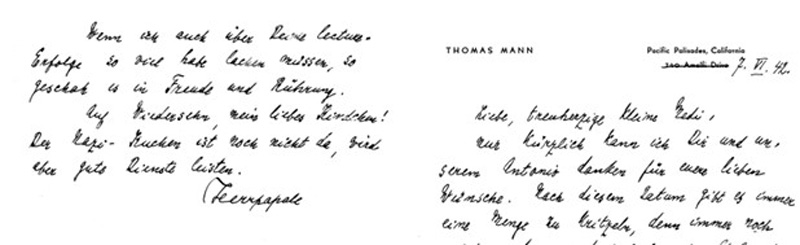 Wenn ich auch über Deine lecture-
Erfolge so viel habe lachen müssen, so
geschah es in Freude und Rührung.
Auf Wiedersehn, mein liebes Kindchen!
Der Nazi-Kuchen ist noch nicht da, wird
aber gute Dienste leisten.
Herrpapale
THOMAS MANN
Pacific Palisades, California
Amalfi Drive 7. VI. 42.
Liebe, treuherzige kleine Medi,
nur kürzlich kann ich Dir und un-
serem Antonio danken für euere lieben
Wünsche. Nach diesem Datum gibt es immer
eine Menge zu kritzeln, denn immer noch